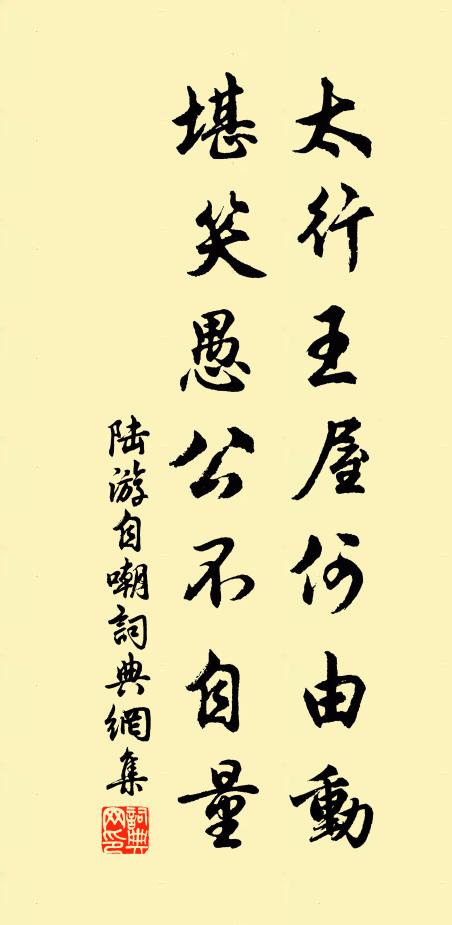 太行王屋何由動
堪笑愚公不自量
陆游自嘲詞典網集
詞典网印